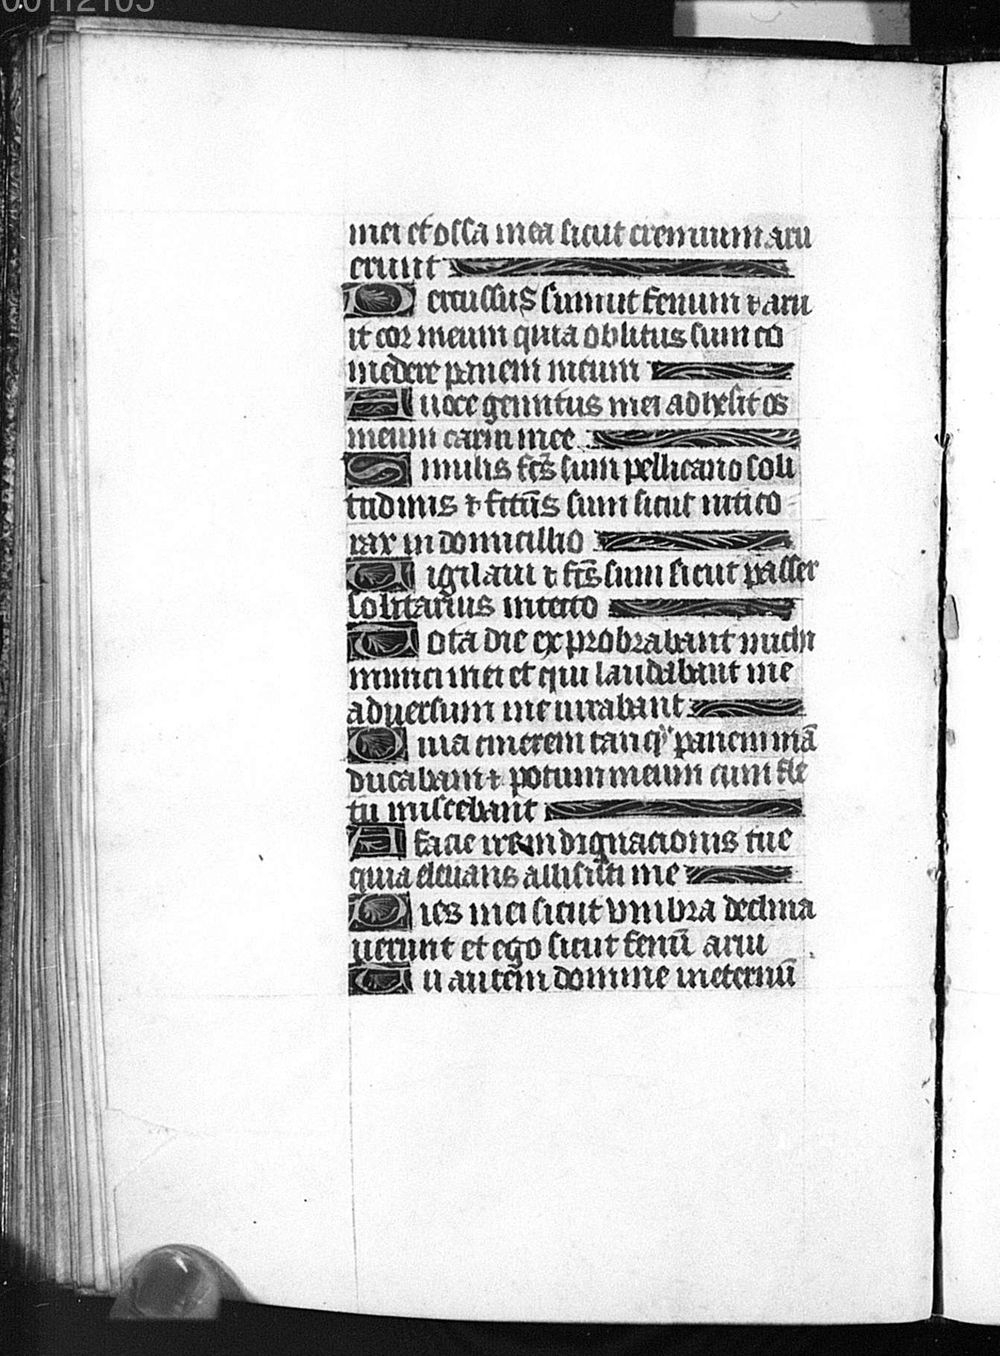 00112105
mei et ossa mea sicut cremium aru
erunt
Percussus sum ut fenum ⁊ aru
it cor meum quia oblitus sum co
medere panem meum
A uoce gemitus mei adhesit os
meum carni mee
Similis fc̄s sum pellicano soli
tudinis ⁊ fctūs sum sicut nitico
rax in domicillio
Uigilaui ⁊ fc̄s sum sicut passer
solitarius in tecto
Tota die exprobrabant michi
inimici mei et qui laudabant me
aduersum me iurabant
Quia cinerem tanqͣ panem mā
ducabam ⁊ potum meum cum fle
tu miscebam
A facie ire indignacionis tue
quia eleuans allisisti me
Dies mei sicut vmbra declina
uerunt et ego sicut fenū arui
Tu autem domine in eternū